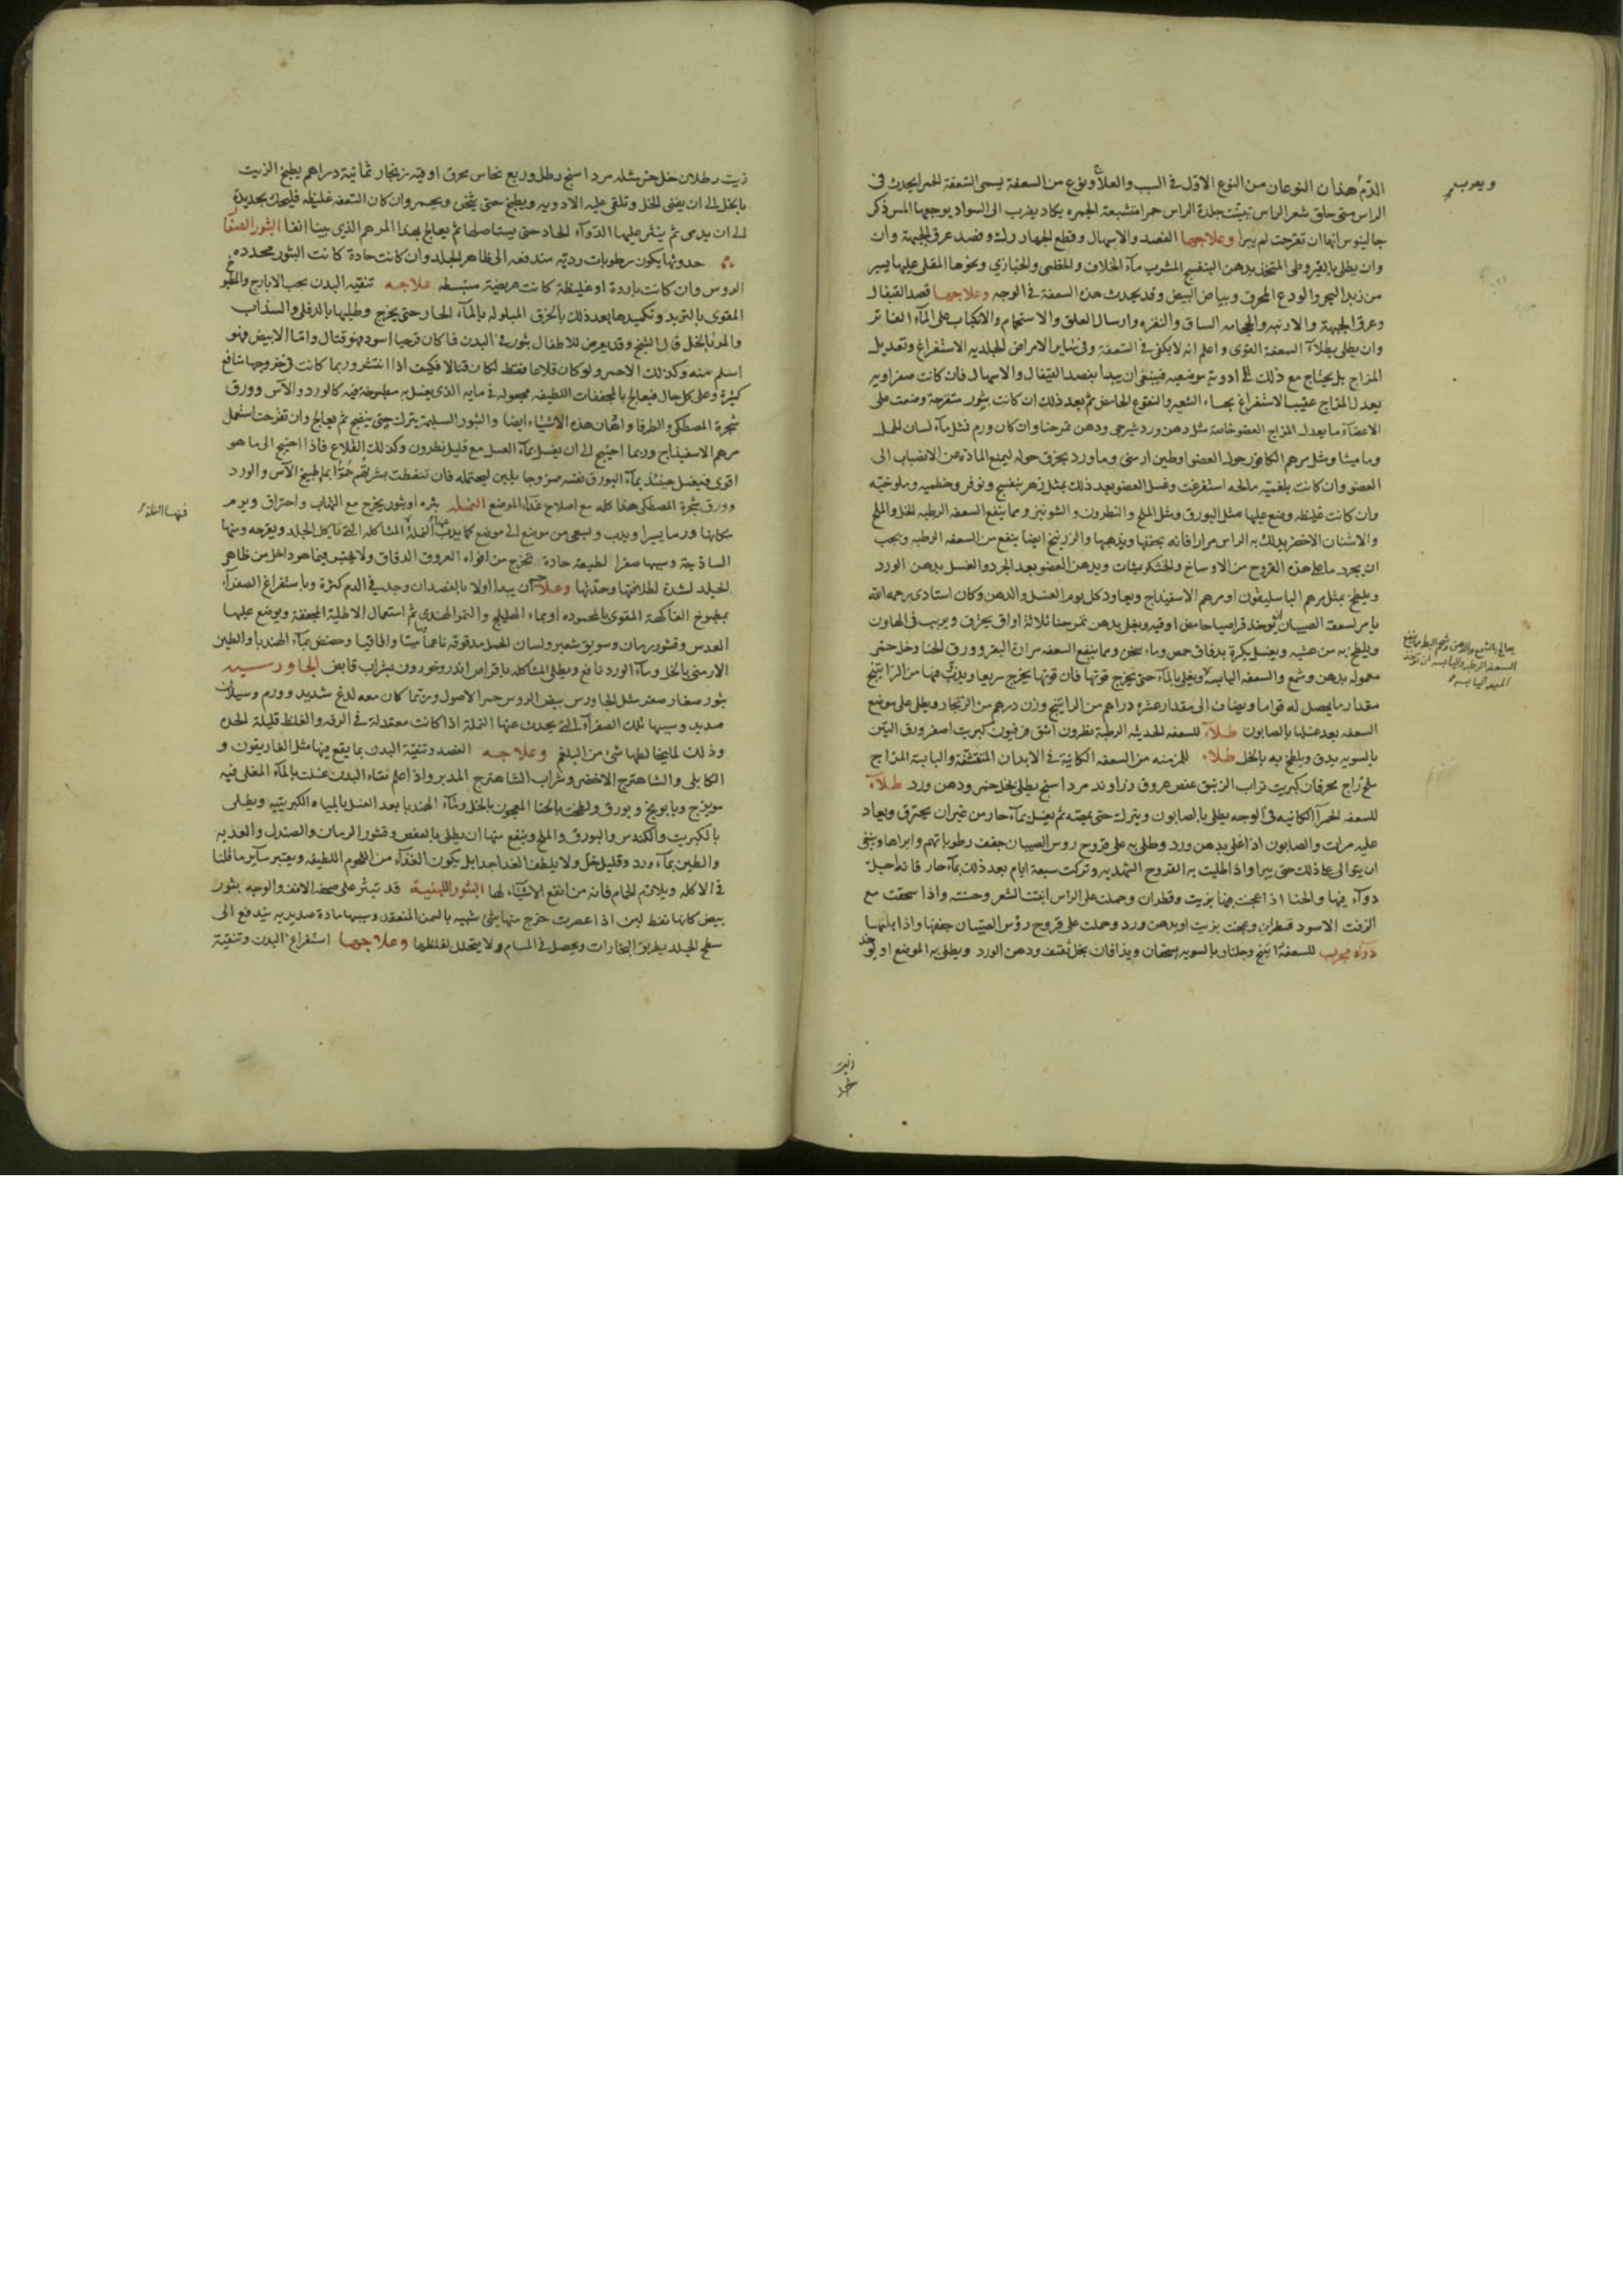 الدم هذان النوعان من النوع الاول في السبب والعلاج ونوع من السعفة يسمى السعفة الحمرا يحدث في
الراس متى حلق شعر الراس تبينت جلدة الراس حمرا مشبعة الحمره يكاد يضرب الى السواد يوجعها المس ذكر
جالينوس انها ان تقرحت لم يبرا وعلاجها الفصد والاسهال وقطع الجهار رك وفصد عرق الجبهة وان
وان يطلى بالقيروطى المتخذ بدهن البنفسج المشرب مآء الخلاف والخطمى والخبازي ونحوها المقلى عليها يسير
من زبد البحر والودع المحرق وبياض البيض وقد يحدث هذه السعفة في الوجه وعلاجها فصد القيفال
وعرق الجبهة والارنبه والحجامه الساق والنقره وارسال العلق والاستحمام والانكباب على المآء الفاتر
وان يطلى بطلآء السعفة القوى واعلم انه لا يكفى في السعفة وفي ساير الامراض الجلديه الاستفراغ وتعديل
المزاج بل يحتاج مع ذلك الى ادوية موضعيه فينبغى ان يبدا بفصد القيفال والاسهال فان كانت صفراويه
يعدل المزاج عقيب الاستفراغ بحساء الشعير والنقوع الحامض ثم بعد ذلك ان كانت بثور متقرحة وضعت على
الاعضآء ما يعدل المزاج العضو خاصة مثل دهن ورد شيرجى ودهن تمرحنا وان كان ورم فمثل مآء لسان الحمل
وماميثا ومثل مرهم الكافور حول العضو اوطين ارمنى وماورد بخرق حوله ليمنع المادة عن الانصباب الى
العضو وان كانت بلغمية مالحه استفرغت وغسل العضو بعد ذلك بمثل زهر بنفسج ونوفر وخطميه وملوخيه
وان كانت غليظه وضع عليها مثل البورق ومثل الملح والنطرون والشونيز ومما ينفع السعفه الرطبه الخل والملح
والاشنان الاخضر يدلك به الراس مرارا فانه يجففها ويذهبها والزرنيخ ايضا ينفع من السعفه الرطبه ويجب
ان يجرد ما على هذه القروح من الاوساخ والخشكريشات ويدهن العضو بعد الجرد والغسل بدهن الورد
ويلطخ بمثل مرهم الباسليقون او مرهم الاسفيداج ويعاود كل يوم الغسل والدهن وكان استادى رحمه الله
يامر لسعفة الصبيان ان يوخذ قراصيا حامض اوقيه ويغلى بدهن تمرحنا ثلاثة اواق يحرق ويربب في الهاون
ويلطخ به من عشيه ويغسل بكرة بدقاق حمص وماء سخن ومما ينفع السعفه مران البقر وورق الحنا وخل خمر
معموله بدهن وشمع والسعفه اليابسة ويغلى بالمآء حتى يخرج قوتها فان قوتها يخرج سريعا ويذوب فيها من الراتينج
مقدار ما يحصل له قواما ويضاف الى مقدار عشره دراهم من الراتينج وزن درهم من الزنجار ويطلى على موضع
السعفه بعد غسلها بالصابون طلآء للسعفه الحديثه الرطبة نطرون اشق فرفيون كبريت اصفر ورق التين
بالسويه يدق ويلطخ به بالخل طلاء للمزمنه من السعفه الكائنة في الابدان المتقشفة واليابسة المزاج
ملح زاج محرقان كبريت تراب الزئبق عفص عروق زراوند مرداسنج يطلى بخل خمر ودهن ورد طلآء
للسعفه الحمرآ الكائنيه في الوجه يطلى بالصابون ويترك حتى يعضه ثم يغسل بمآء حار من غير ان يحترق ويعاد
عليه مرات والصابون اذا غلى بدهن ورد وطلى به على قروح روس الصبيان جففت رطوباتهم وابراها وينبغى
ان يتوالى على ذلك حتى يبرا واذا طليت به القروح الشهديه وتركت سبعة ايام بعد ذلك بمآء حار فانه اجل
دوآء فيها والحنا اذا عجنت فيها بزيت وقطران وحملت على الراس انبتت الشعر وحسنته واذا سحقت مع
الزفت الاسود قطران وعجنت بزيت او بدهن ورد وحملت على قروح رؤس الصبيان جففها واذا بلتها
دوآء مجرب للسعفة راتينج وجلنار بالسويه يسحقان ويذافان بخل ثقيف ودهن الورد ويطلى به الموضع او يوخذ
ويعرب
يعالج بالشمع والدهن وشحم البط ومما ينفع
السعفه الرطبه واليابسه ان يوخذ
زيت رطلان خل خمر مثله مرداسنج رطل وربع نحاس محرق اوقيه زنجار ثمانية دراهم يطبخ الزيت
بالخل الى ان يفنى الخل وتلقى عليه الادويه ويطبخ حتى يثخن ويحمر وان كان السعفه غليظه فليحك بحديدة
الى ان يدمى ثم ينثر عليها الدوآء الحاد حتى يستاصلها ثم يعالج بهذا المرهم الذى بينا انفا البثور الصغا
ر حدوثها يكون رطوبات رديه مندفعه الى ظاهر الجلد وان كانت حادة كانت البثور محدده
الروس وان كانت باردة او غليظة كانت عريضة منبسطه علاجه تنقيه البدن بحب الايارج والمطبوخ
المقوى بالتربد وتكميدها بعد ذلك بالخرق المبلوله بالمآء الحار حتى يخرج وطليها بالدفلى والسذاب
والمر بالخل قال الشيخ وقد يعرض للاطفال بثور في البدن فما كان قرحيا اسود فهو قتال واما الابيض فهو
اسلم منه وكذلك الاحمر ولو كان قلاعا فقط لكان قتالا فكيف اذا انتشر وربما كانت في خروجها منافع
كثيرة وعلى كل حال فيعالج بالمجففات اللطيفه مجعوله في مايه الذى يغسل به مطبوخة فيه كالورد والآس وورق
شجرة المصطكى والطرفا وادهان هذه الاشياء ايضا والبثور السليمة يترك حتى ينضج ثم يعالج وان تقرحت استعمل
مرهم الاسفيداج وربما احتيج الى ان يغسل بمآء العسل مع قليل نطرون وكذلك القلاع فاذا احتيج الى ما هو
اقوى فيغسل حينئذ بمآء البورق نفسه ممزوجا بلبن ليحتمله فان تنفطت بشرتهم حموا بمآء طبيخ الآس والورد
وورق شجرة المصطكى هذا كله مع اصلاح غذاء الموضع النملة بثره او بثور يخرج مع التهاب واحتراق ويرم
مكانها ورما يسيرا ويدب ويسعى من موضع الى موضع كما يدب النملة المشاكله التي تاكل الجلد ويقرحه ومنها
الساذجة وسببها صفرا لطيفه حادة تخرج من افواه العروق الدقاق ولا يحتبس فيما هو داخل من ظاهر
الجلد لشدة لطافتها وحدتها وعلاجه ان يبدا اولا بالفصد ان وجد في الدم كثرة وباستفراغ الصفرآء
بمطبوخ الفاكهة المقوى بالمحموده او بماء الهليلج والتمر الهندى ثم استعمال الاطلية المجففة ويوضع عليها
العدس وقشور رمان وسويق شعير ولسان الحمل مدقوقه ناعما ماميثا واقاقيا وحضض بمآء الهندبا والطين
الارمنى بالخل ومآء الورد نافع ويطلى المشاكله باقراص اندروخورون بشراب قابض الجاورسيه
بثور صغار صفر مثل الجاورس بيض الروس حمرا الاصول وربما كان معه لدغ شديد وورم وسيلان
صديد وسببها تلك الصفرآء التي يحدث عنها النملة اذا كانت معتدلة في الرقه والغلظ قليلة الحده
وذلك لما يخالطها شئ من البلغم وعلاجه الفصد وتنقية البدن بما يقع فيها مثل الغاريقون و
الكابلى والشاهترج الاخضر وشراب الشاهترج المدبر واذا علم نقاء البدن غسلت بالمآء المغلى فيه
مويزج وبابونج وبورق ولطخت بالحنا المعجون بالخل ومآء الهندبا بعد الغسل بالمياه الكبريتيه ويطلى
بالكبريت والكندس والبورق والملح وينفع منها ان يطلى بالعفص وقشور الرمان والصندل والعذبه
والطين بمآء ورد وقليل خل ولا يلطف الغذا جدا بل يكون الغذآء من اللحوم اللطيفه ويعتبر سآير ما قلنا
في الاكله ويلازم الحمام فانه من انفع الاشيآء لها البثور اللبنية قد تبثر على صحفه الانف والوجه بثور
بيض كانها نقط لبن اذا عصرت خرج منها شئ شبيه بالسمن المنعقد وسببها مادة صديديه يندفع الى
سطح الجلد بطريق البخارات ويحصل في المسام ولا يتحلل لغلظها وعلاجها استفراغ البدن وتنقية